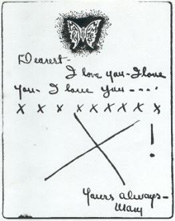 Dearest-
I love you-I love
you- I love you----'
x x x x x x x x x
X !
Yours always-
Mary